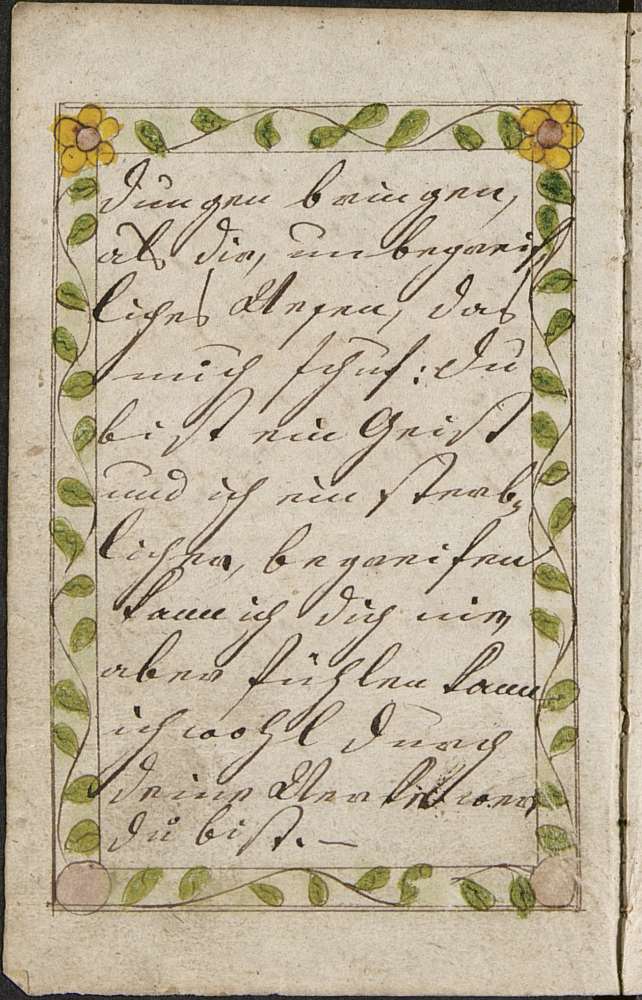 dungen bringen,
als dir, unbegreif
liches Wesen, das
mich schuf: Du
bist ein Geist
und ich ein sterb„
licher, begreifen
kann ich dich nie,
aber fühlen kann
ich wohl durch
deine Werke wer
du bist. —